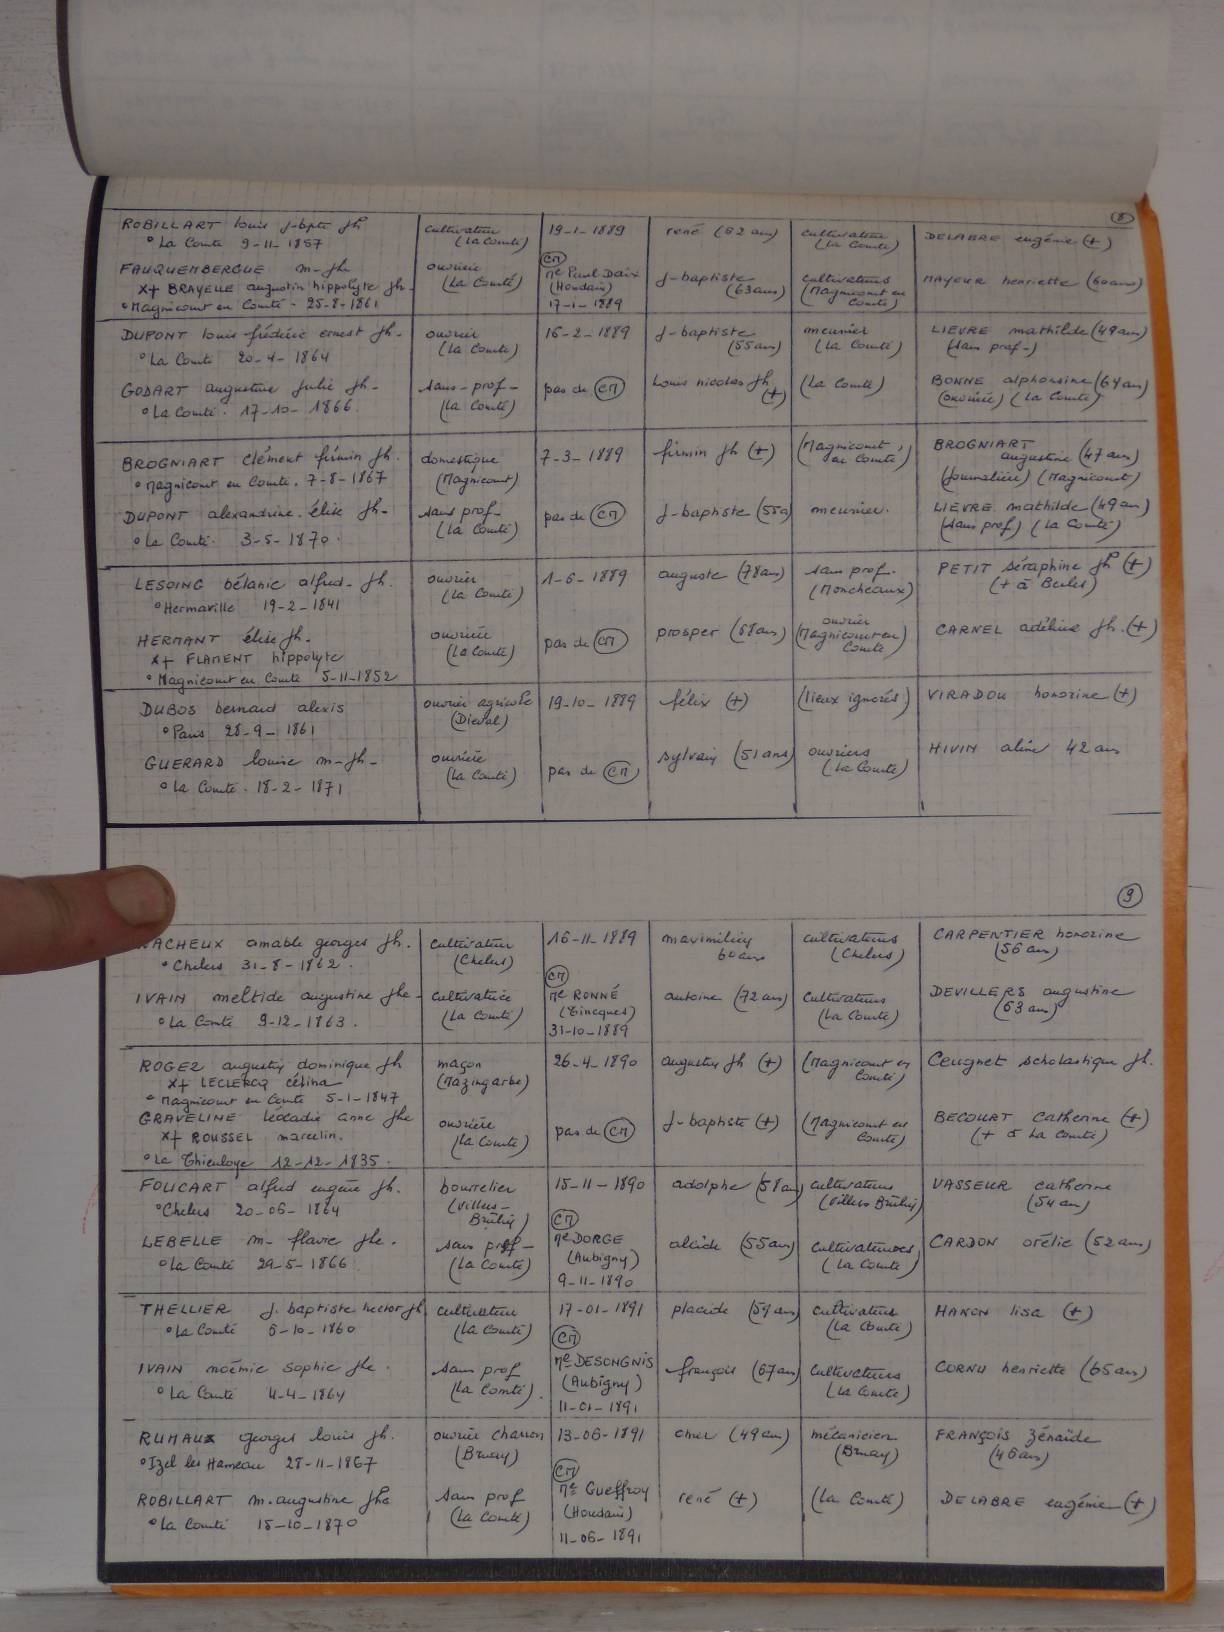 8
ROBILLART louis J-bpte Jh cultivateur 19-1-1889 rené (62 ans) cultivateur DELABRE eugénie (+)
° La Comté 9-11-1857 (La Comté) (La Comté)
FAUQUEMBERGUE m-Jhe ouvrière CM J-baptiste cultivateurs MAYEUR henriette (60 ans)
x+ BRAYELLE augustin hippolyte Jh- (La Comté) Me Paul Daix (63 ans) (Magnicourt en
° Magnicourt en Comté - 25-8-1861 (Houdain) Comté)
17-1-1889
DUPONT louis frédéric ernest Jh- ouvrier 16-2-1889 J-baptiste meunier LIEVRE mathilde (49 ans)
° La Comté 20-4-1864 (La Comté) (55 ans) (La Comté) (sans prof-)
GODART augustine Julie Jh- sans-prof- pas de CM Louis nicolas Jh (La Comté) BONNE alphonsine (64 ans)
° La Comté. 17-10-1866 (La Comté) (+) (ouvrière) (La Comté)
BROGNIART clément firmin Jh. domestique 7-3-1889 firmin Jh (+) (Magnicourt BROGNIART
° Magnicourt en Comté. 7-8-1867 (Magnicourt) en Comté) augustine (47 ans)
(Journalière) (Magnicourt)
DUPONT alexandrine. élise Jh- sans prof- pas de CM J-baptiste (55 a) meunier. LIEVRE mathilde (49 ans)
° La Comté. 3-5-1870. (La Comté) (sans prof) (La Comté)
LESOING bélanie alfred- Jh. ouvrier 1-6-1889 auguste (78 ans) sans prof. PETIT séraphine Jh (+)
° Hermaville 19-2-1841 (La Comté) (Moncheaux) (+ à Berles)
HERMANT élise Jh. ouvrière pas de CM prosper (68 ans) ouvrier CARNEL adéline Jh. (+)
x+ FLAMENT hippolyte (La Comté) (Magnicourt en
° Magnicourt en Comté 5-11-1852 Comté)
DUBOS bernard alexis ouvrier agricole 19-10-1889 félix (+) (lieux ignorés) VIRADOU honorine (+)
° Paris 28-9-1861 (Dieval)
GUERARD louise m-Jh- ouvrière pas de CM sylvain (51 ans) ouvriers HIVIN aline 42 ans
° La Comté. 18-2-1871 (La Comté) (La Comté)
9
ACHEUX amable georges Jh. cultivateur 16-11-1889 maximilien cultivateurs CARPENTIER honorine
° Chelers 31-8-1862. (Chelers) 60 ans (Chelers) (56 ans)
IVAIN meltide augustine Jhe- cultivatrice CM antoine (72 ans) cultivateurs DEVILLERS augustine
° La Comté 9-12-1863. (La Comté) Me RONNÉ (La Comté) (63 ans)
(Tincques)
31-10-1889
ROGEZ augustin dominique Jh maçon 26-4-1890 augustin Jh (+) (Magnicourt en Ceugnet scholastique Jh.
x+ LECLERCQ célina (Mazingarbe) Comté)
° Magnicourt en Comté 5-1-1847
GRAVELINE léocadie anne Jhe ouvrière pas de CM J-baptiste (+) (Magnicourt en BECOURT Catherine (+)
x+ ROUSSEL marcelin. (La Comté) Comté) (+ à La Comté)
° La Thieuloye 12-12-1835.
FOUCART alfred eugène Jh. bourrelier 15-11-1890 adolphe (58 ans) cultivateurs VASSEUR catherine
° Chelers 20-06-1864 (Villers- (Villers Brûlin) (54 ans)
Brûlin)
LEBELLE m- flavie Jhe. sans prof- CM alcide (55 ans) cultivateurs CARDON orélie (52 ans)
° La Comté 29-5-1866 (La Comté) Me DORGE (La Comté)
(Aubigny)
9-11-1890
THELLIER J. baptiste hector Jh cultivateur 17-01-1891 placide (59 ans) cultivateurs HANON lisa (+)
° La Comté 5-10-1860 (La Comté) (La Comté)
IVAIN noémie sophie Jhe. sans prof CM françois (67 ans) cultivateurs CORNU henriette (65 ans)
° La Comté 4-4-1864 (La Comté). Me DESONGNIS (La Comté)
(Aubigny)
11-01-1891
RUMAUX georges louis Jh. ouvrier charron 13-06-1891 omer (49 ans) mécanicien FRANÇOIS Zénaïde
° Izel les Hameau 28-11-1867 (Bruay) (Bruay) (46 ans)
ROBILLART m.augustine Jhe sans prof CM rené (+) (La Comté) DELABRE eugénie (+)
° La Comté 15-10-1870 (La Comté) Me Gueffroy
(Houdain)
11-06-1891